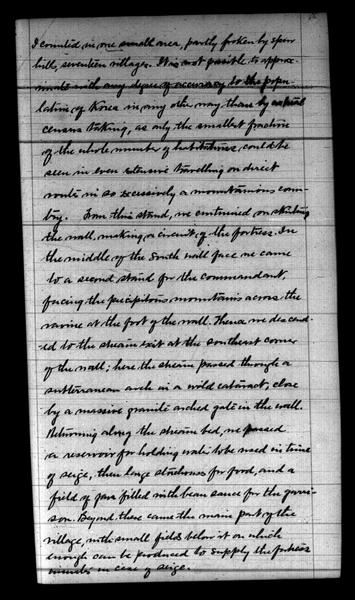 I counted in one small area, partly broken by spur
hill, seventeen villages. It is not posible to approx-
imate with any degree of accuracy to the popu-
lation of Korea in any other way than by actual
census taking, as only the smallest fraction
of the whole number of habitations could be
seen in even extensive travelling on direct
route in so excessively a mountainous coun-
try. From this stand, we continued on skirting
the wall, making a circuit of the fortress. In
the middle of the South wall face we came
to a second stand for the commandant,
facing the precipitous mountains across the
ravine at the foot of the wall. Thence we descend-
ed to the stream exit at the southeast corner
of the wall; here the stream passed through a
subterranean arch in a wild cataract, close
by a massive granite arched gate in the wall.
Returning along the stream bed, we passed
a reservoir for holding water to be used in time
of seige, then large storehouses for food, and a
field of jars filled with bean sauce for the garri-
son. Beyond these came the main part of the
village, with small fields below it on which
enough can be produced to supply the fortress
inmates in case of seige.